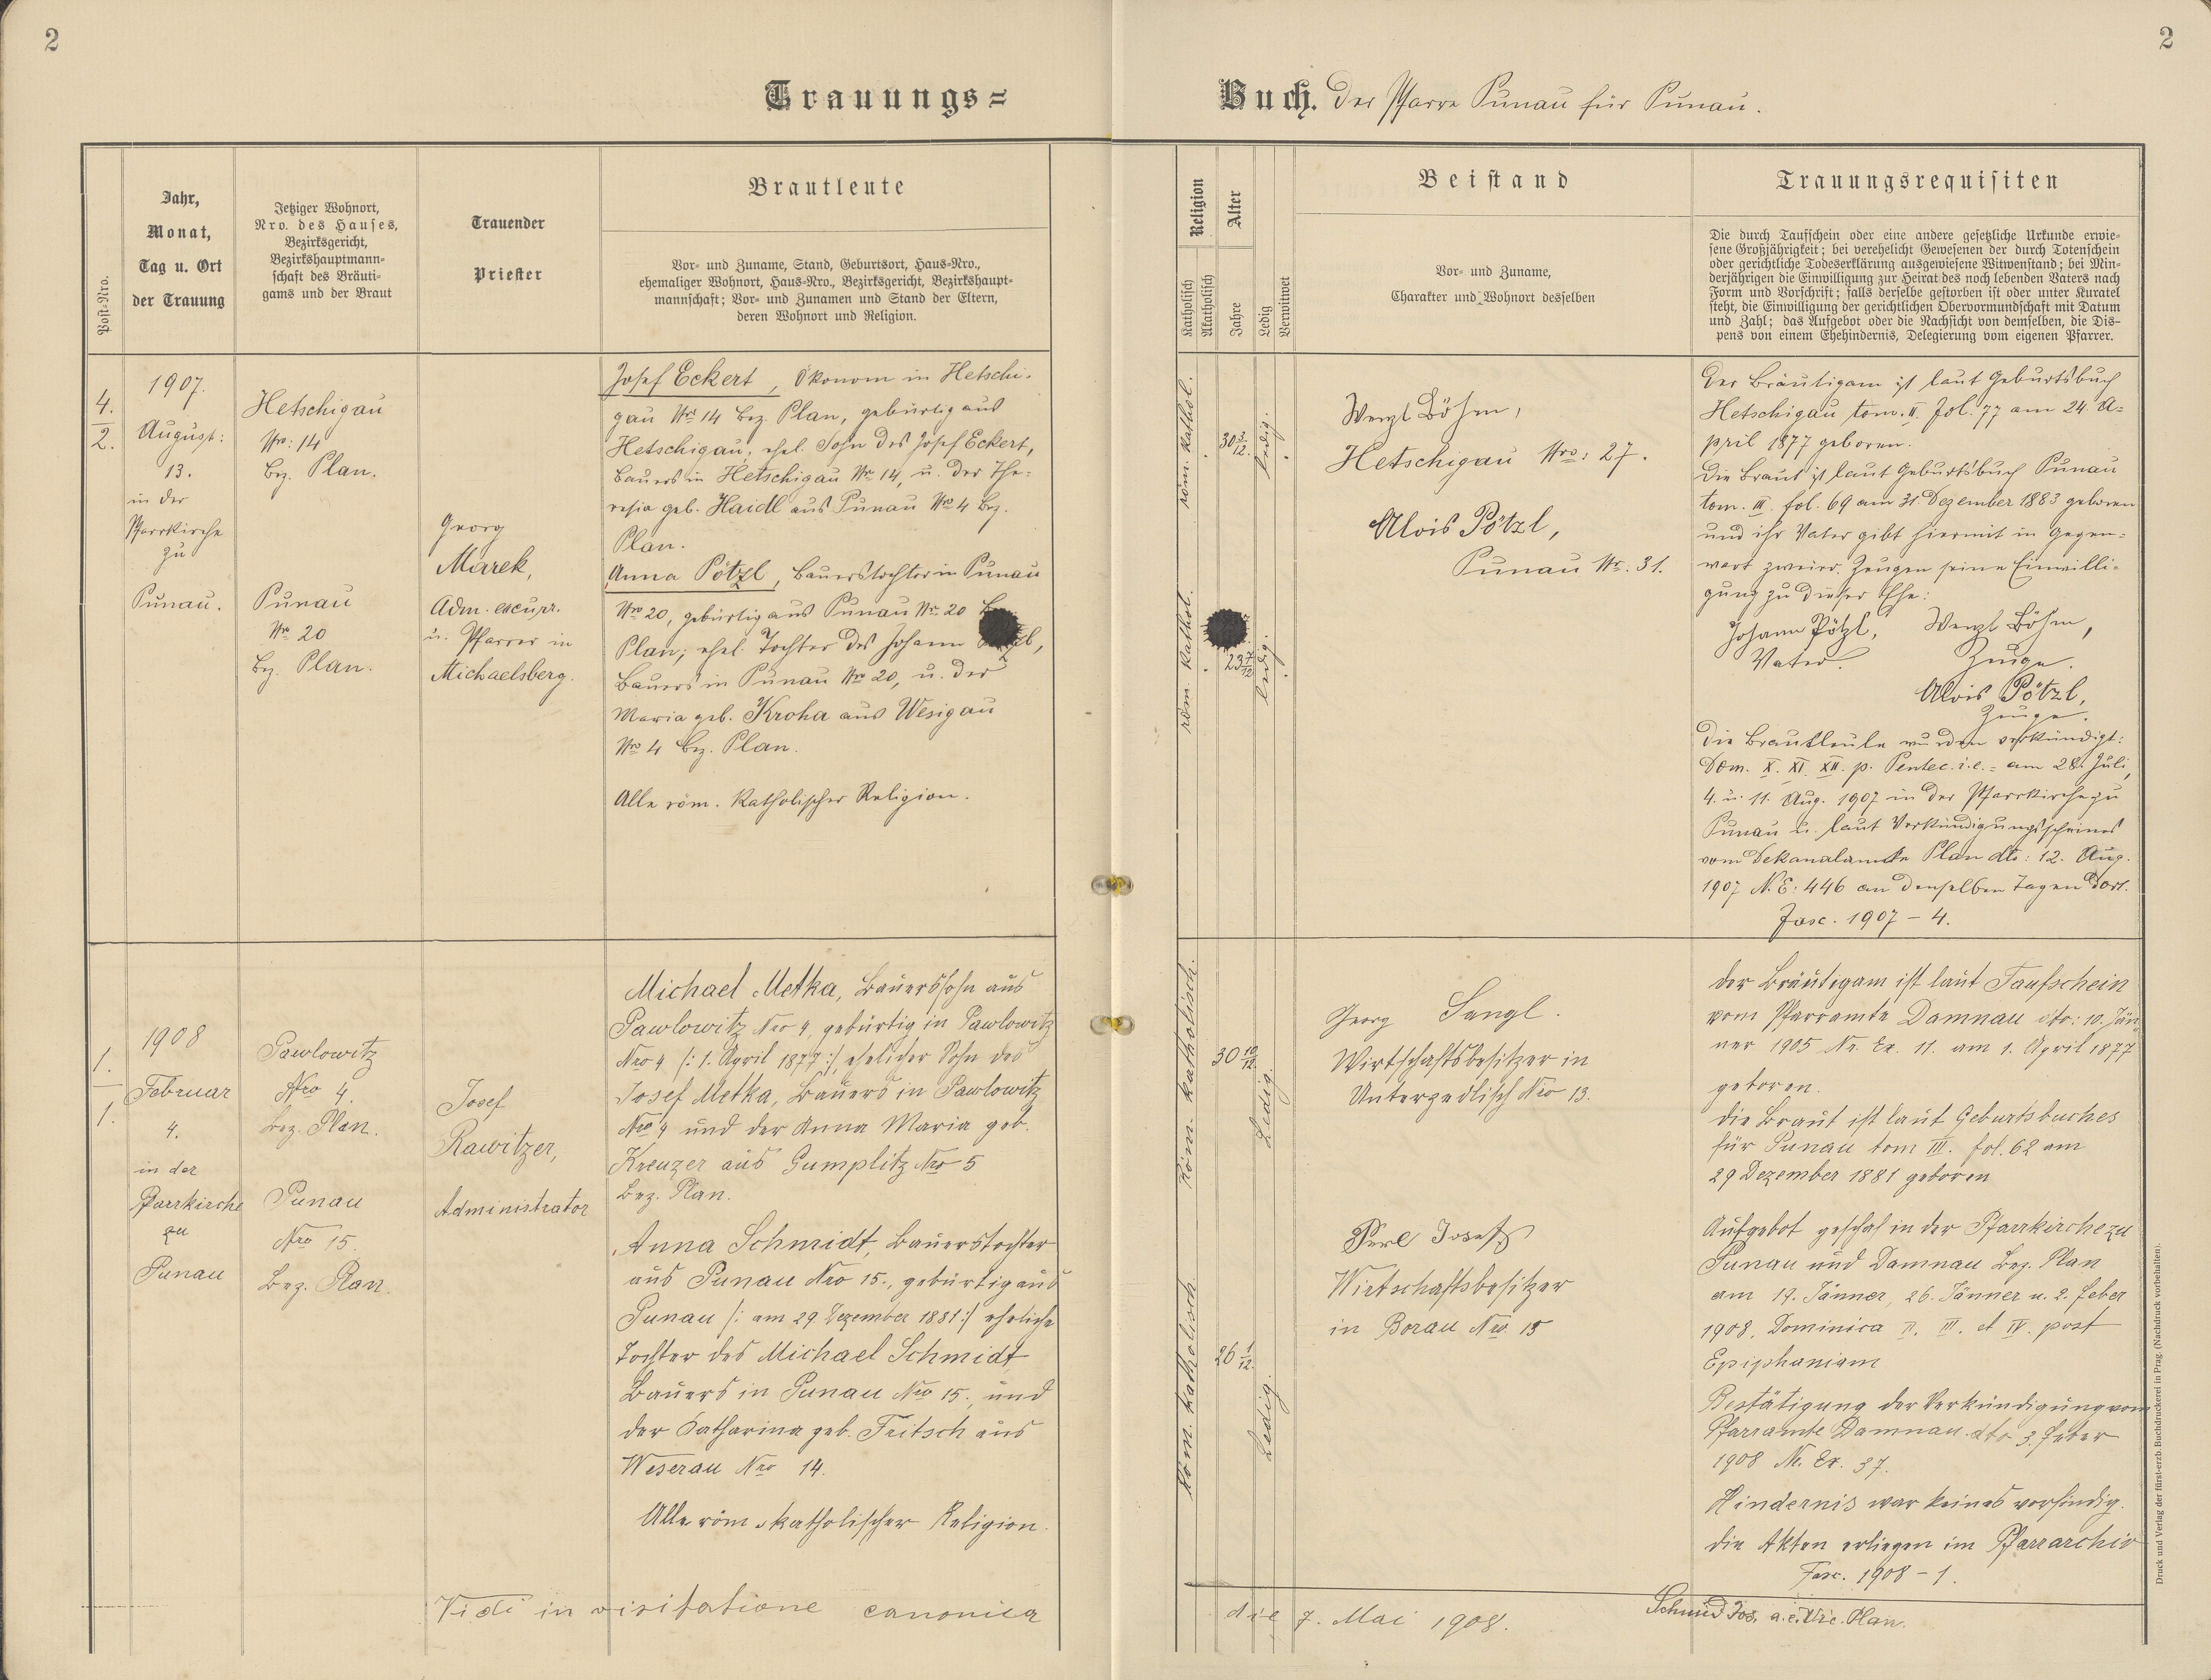 2
2
Trauungs=
Buch. Der Pfarre Punau für Punau.
Post-Nro.
Jahr,
Monat,
Tag u. Ort
der Trauung
Jetziger Wohnort,
Nro. des Hauses,
Bezirksgericht,
Bezirkshauptmann-
schaft des Bräuti-
gams und der Braut
Trauender
Priester
Brautleute
Vor- und Zuname, Stand, Geburtsort, Haus-Nro.,
ehemaliger Wohnort, Haus-Nro., Bezirksgericht, Bezirkshaupt-
mannschaft; Vor- und Zunamen und Stand der Eltern,
deren Wohnort und Religion.
Religion
Katholisch
Akatholisch
Alter
Jahre
Ledig
Verwitwet
Beistand
Vor- und Zuname,
Charakter und Wohnort desselben
Trauungsrequisiten
Die durch Taufschein oder eine andere gesetzliche Urkunde erwie-
sene Großjährigkeit; bei verehelicht Gewesenen der durch Totenschein
oder gerichtliche Todeserklärung ausgewiesene Witwenstand; bei Min-
derjährigen die Einwilligung zur Heirat des noch lebenden Vaters nach
Form und Vorschrift; falls derselbe gestorben ist oder unter Kuratel
steht, die Einwilligung der gerichtlichen Obervormundschaft mit Datum
und Zahl; das Aufgebot oder die Nachsicht von demselben, die Dis-
pens von einem Ehehindernis, Delegierung vom eigenen Pfarrer.
4.
2.
1907.
August:
13.
in der
Pfarrkirche
zu
Punau.
Hetschigau
Nro: 14
Bez. Plan.
Punau
Nr. 20
Bez. Plan.
Georg
Marek,
Adm. excurr.
u. Pfarrer in
Michaelsberg.
Josef Eckert, Ökonom in Hetschi-
gau Nr. 14 Bez. Plan, gebürtig aus
Hetschigau; ehel. Sohn des Josef Eckert,
Bauers in Hetschigau Nr. 14, u. der The-
resia geb. Haidl aus Punau Nro 4 Bez.
Plan.
Anna Pötzl, Bauerstochter in Punau
Nro 20, gebürtig aus Punau Nr. 20
Plan; ehel. Tochter des Johann
Bauers in Punau Nro 20, u. der
Maria geb. Kroha aus Wesigau
Nro 4 Bez. Plan.
Alle röm. Katholischer Religion.
röm. kathol.
30 3/12.
ledig.
röm. kathol.
23 7/12
ledig.
Wenzl Böhm,
Hetschigau Nro: 27.
Alois Pötzl,
Punau Nr. 31.
Der Bräutigam ist laut Geburtsbuch
Hetschigau tom. II. fol. 77 am 24. A-
pril 1877 geboren.
Die Braut ist laut Geburtsbuch Punau
tom. III. fol. 69 am 31. Dezember 1883 geboren
und ihr Vater gibt hiermit in Gegen-
wart zweier Zeugen seine Einwilli-
gung zu dieser Ehe:
Johann Pötzl, Wenzl Böhm,
Vater. Zeuge.
Alois Pötzl,
Zeuge.
Die Brautleute wurden verkündigt:
Dom. X. XI. XII. p. Pentec. i.e. = am 28. Juli,
4. u. 11. Aug. 1907 in der Pfarrkirche zu
Punau u. laut Verkündigungsscheines
vom Dekanalamte Plan dto: 12. Aug.
1907 N.E: 446 an denselben Tagen dort.
Fasc. 1907 – 4.
1.
1.
1908
Februar
4.
in der
Pfarrkirche
zu
Punau
Pawlowitz
Nro 4.
Bez. Plan.
Punau
Nro 15.
Bez. Plan.
Josef
Rawitzer,
Administrator
Michael Metka, Bauerssohn aus
Pawlowitz Nro 4, gebürtig in Pawlowitz
Nro 4 /: 1. April 1877 :/, ehelicher Sohn des
Josef Metka, Bauers in Pawlowitz
Nro 4 und der Anna Maria geb.
Kreuzer aus Gumplitz Nro 5
Bez. Plan.
Anna Schmidt, Bauerstochter
aus Punau Nro 15., gebürtig aus
Punau /: am 29 Dezember 1881 :/ eheliche
Tochter des Michael Schmidt
Bauers in Punau Nro 15. und
der Katharina geb. Fritsch aus
Weserau Nro 14.
Alle röm. katholischer Religion.
Röm. katholisch.
30 10/12.
Ledig.
Röm. katholisch
26 1/12.
Ledig.
Georg Sangl.
Wirtschaftsbesitzer in
Untergedlisch Nro 13.
Perl Josef
Wirtschaftsbesitzer
in Borau Nro 15
der Bräutigam ist laut Taufschein
vom Pfarramte Damnau dto: 10. Jän-
ner 1905 Nr. Ex. 11. am 1. April 1877
geboren.
die Braut ist laut Geburtsbuches
für Punau tom III. fol. 62 am
29 Dezember 1881 geboren
Aufgebot geschah in der Pfarrkirche zu
Punau und Damnau Bez. Plan
am 19. Jänner, 26. Jänner u. 2. Feber
1908, Dominica II. III. et IV. post
Epiphaniam
Bestätigung der Verkündigung vom
Pfarramte Damnau dto 3. Feber
1908 N. Ex. 37.
Hindernis war keines vorfindig.
die Akten erliegen im Pfarrarchiv
Fasc. 1908 – 1.
Vidi in visitatione canonica
die 7. Mai 1908.
Schmid Jos. a.e. Vic. Plan.
Druck und Verlag der fürst-erzb. Buchdruckerei in Prag. (Nachdruck vorbehalten).